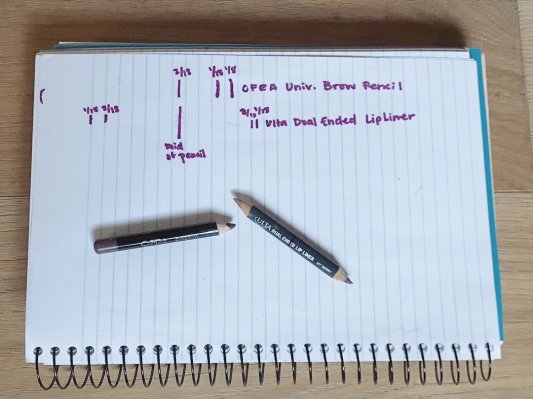 2/18 1/18 1/8
OFRA Univ. Brow Pencil
1/18 2/18
1/18
Ulta Dual Ended LipLiner
Mid
of pencil
ULTA DUAL END D LIP LINER